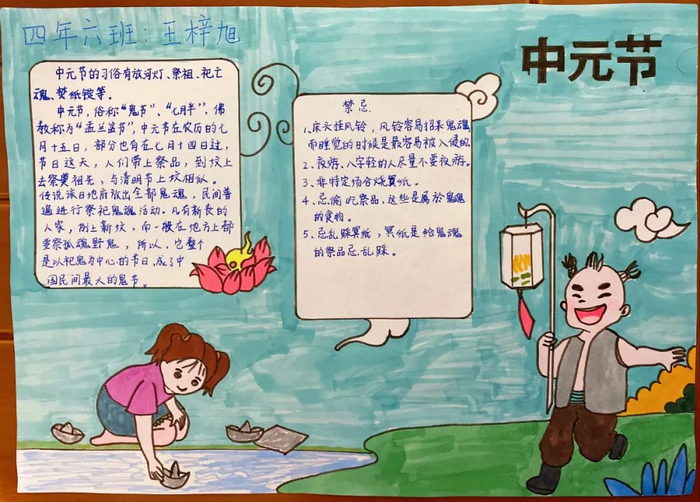 四年六班：王梓旭
中元节
中元节的习俗有放河灯、祭祖、祀亡
魂、焚纸锭等。
中元节，俗称“鬼节”、“七月半”，佛
教称为“盂兰盆节”，中元节在农历的七
月十五日，部分也有在七月十四日过，
节日这天，人们带上祭品，到坟上
去祭奠祖先，与清明节上坟相似。
传说该日地府放出全部鬼魂，民间普
遍进行祭祀鬼魂活动。凡有新丧的
人家，例上新坟，而一般在地方上都
要祭孤魂野鬼，所以，它整个
是以祀鬼为中心的节日，成了中
国民间最大的鬼节。
禁忌
1、床头挂风铃，风铃容易招来鬼魂，
而睡觉的时候是最容易被入侵的。
2、夜游。八字轻的人尽量不要夜游。
3、非特定场合烧冥纸。
4、忌偷吃祭品，这些是属於鬼魂
的食物。
5、忌乱踩冥纸，冥纸是给鬼魂
的祭品忌乱踩。